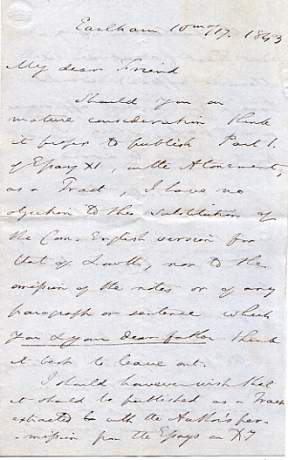 Earlham 10 mo/17. 1843
My dear Friend
Should you on
mature consideration think
it proper to publish Part 1.
of Essay XI, on the Atonement,
as a Tract, I have no
objection to the substitution of
the Com. English version for
that of Lowth, nor to the
omission of the notes or of any
paragraph or sentence which
you & your dear father think
it best to leave out.
I should however wish that
it should be published as a Tract
extracted with the Author's per-
-mission from the Essays on